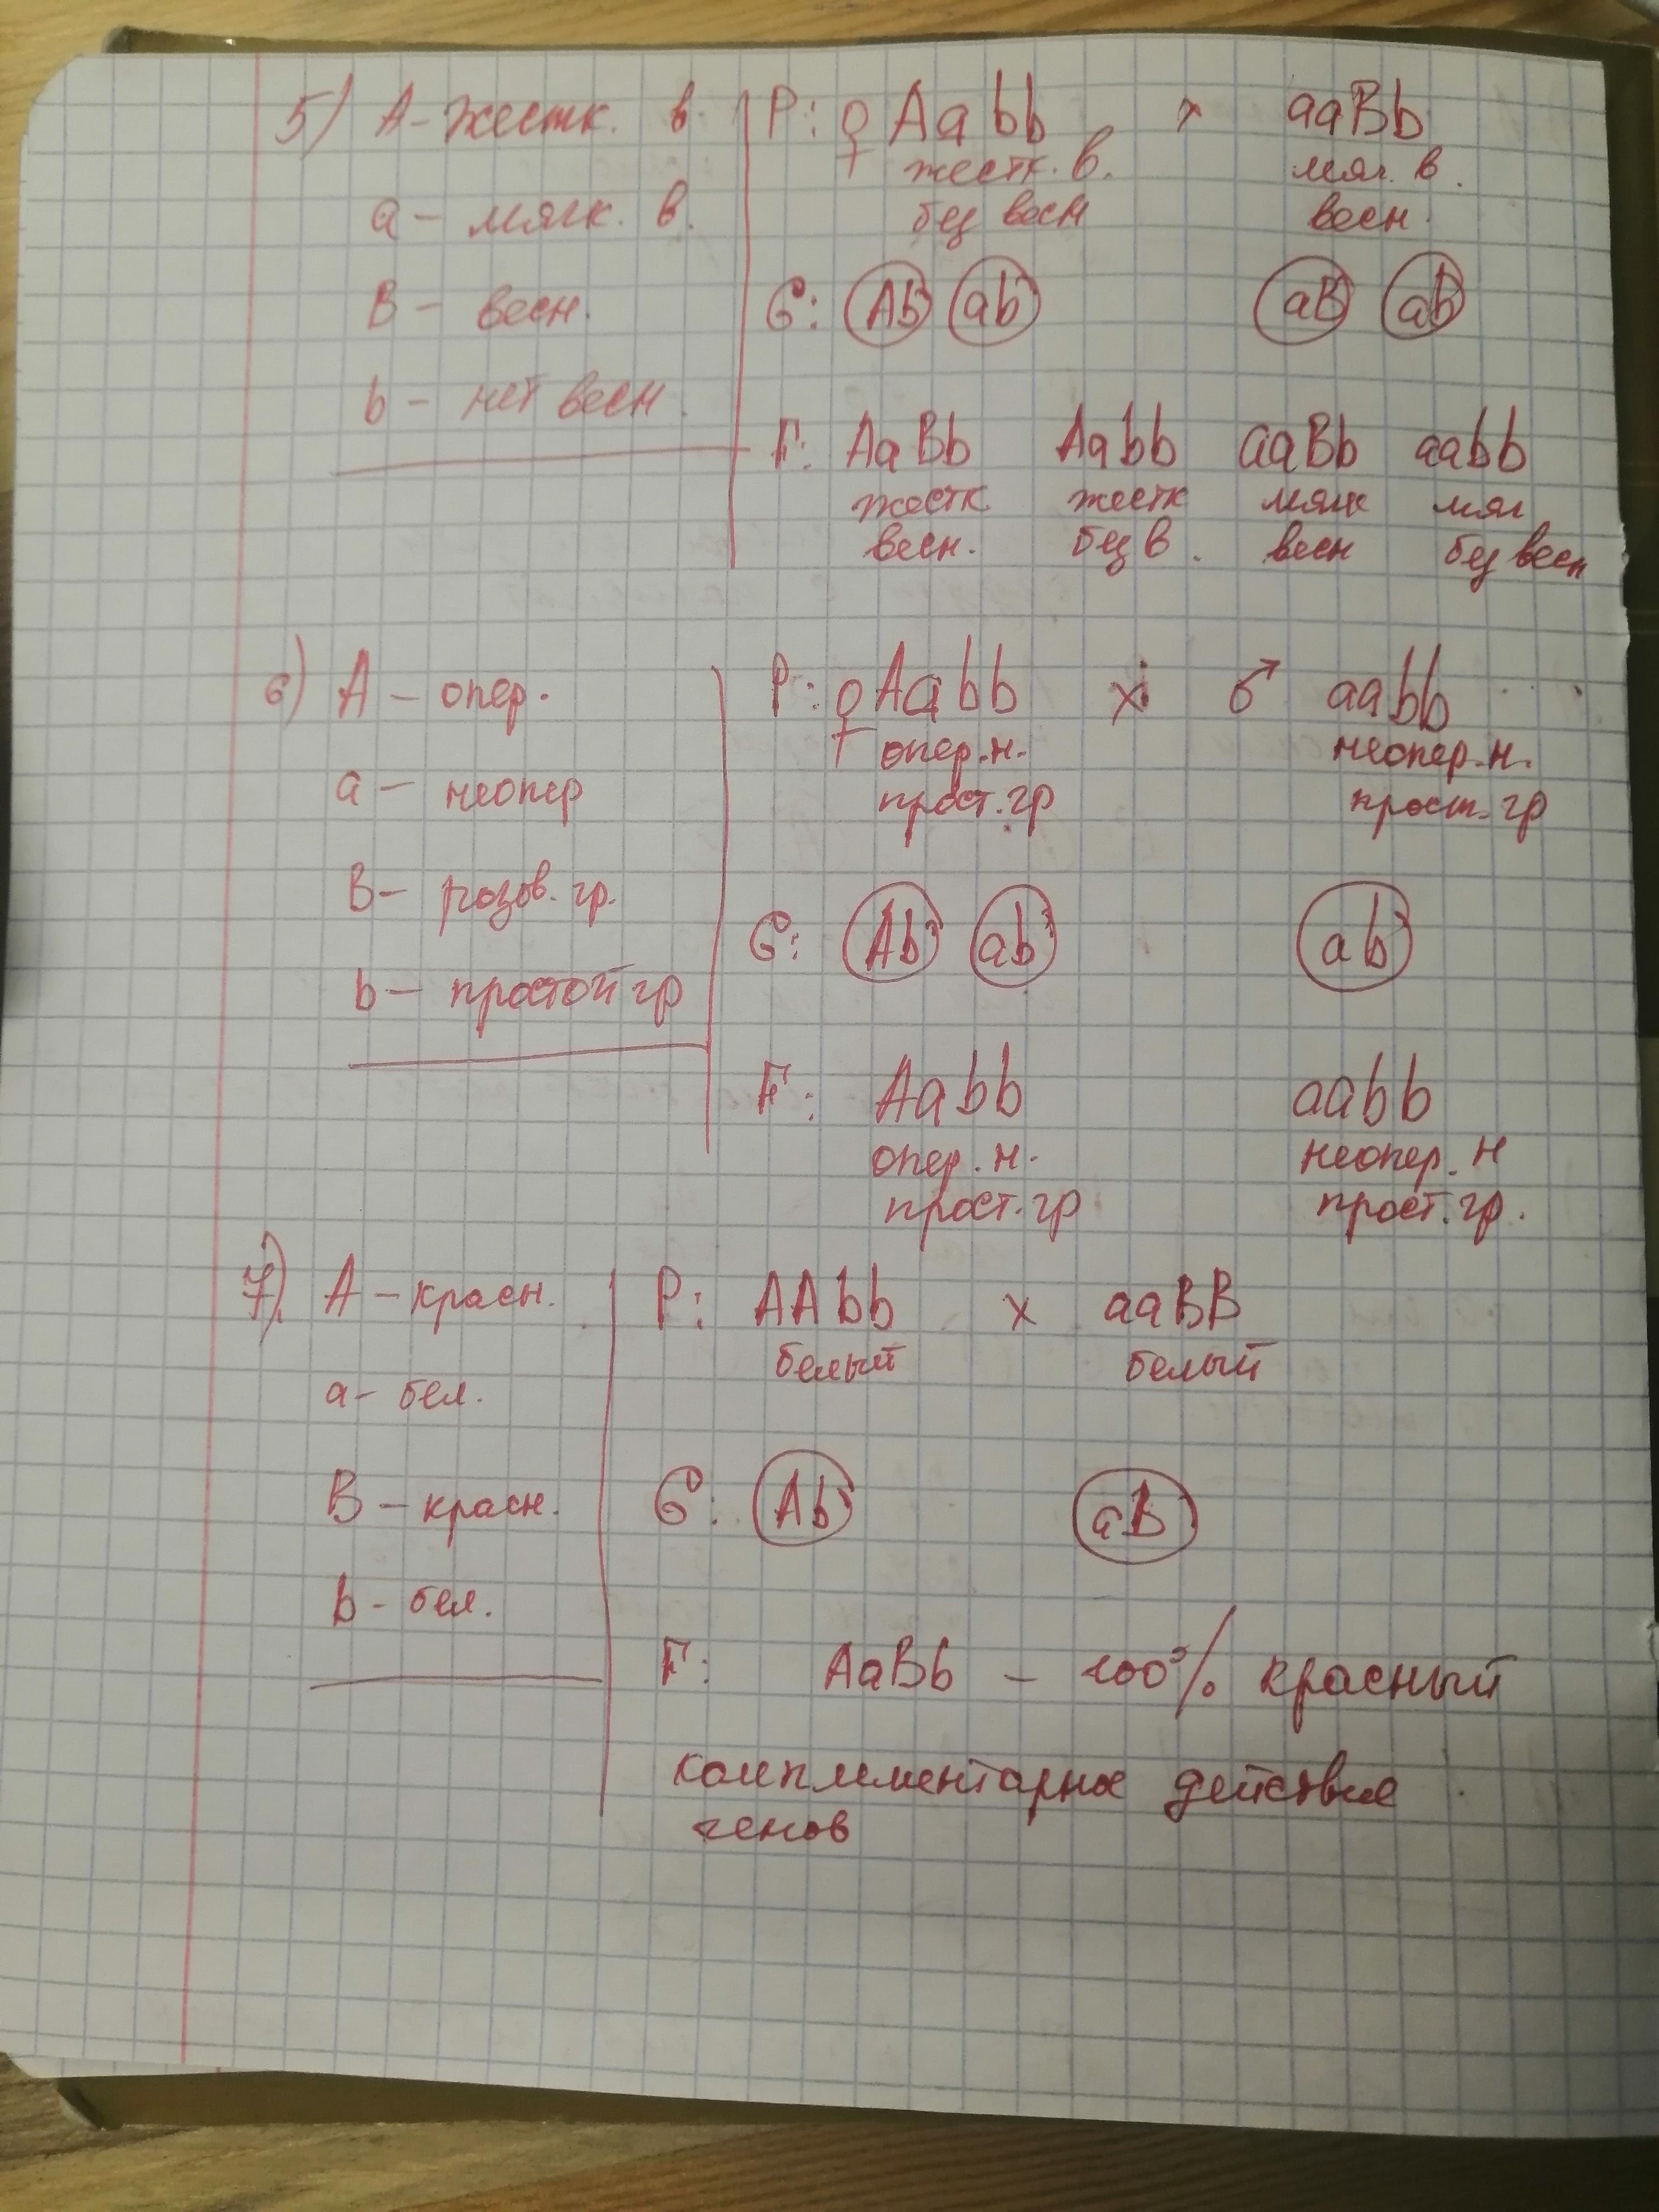 5) А - жестк. в.
а - мягк. в.
В - весн.
b - нет весн.
P: ♀ Aabb x aaBb
жестк. в. мяг. в.
без весн весн.
G: Ab ab aB ab
F: AaBb Aabb aaBb aabb
жестк жестк мягк мяг
весн. без в. весн без весн
6) А - опер.
а - неопер
В - розов. гр.
b - простой гр
P: ♀ Aabb x ♂ aabb
опер. н. неопер. н.
прост. гр прост. гр
G: Ab ab ab
F: Aabb aabb
опер. н. неопер. н
прост. гр прост. гр.
7) А - красн.
а - бел.
В - красн.
b - бел.
P: AAbb x aaBB
белый белый
G: Ab aB
F: AaBb - 100% красный
комплементарное действие
генов